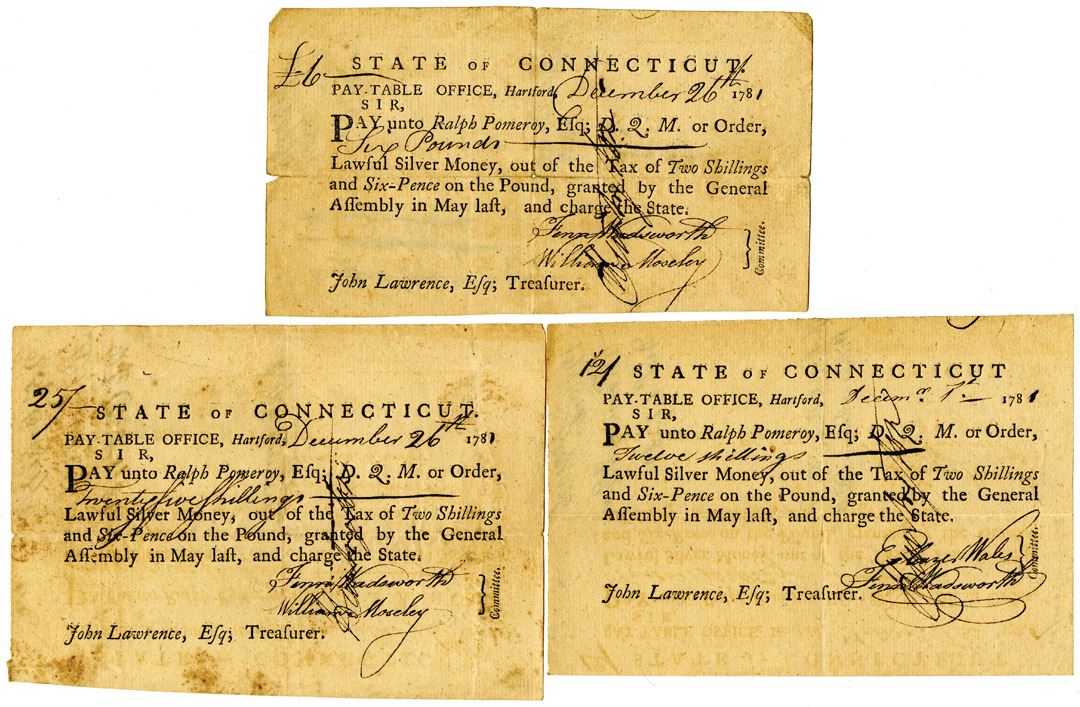 £6 STATE OF CONNECTICUT.
PAY-TABLE OFFICE, Hartford, December 26th 1781
SIR,
PAY unto Ralph Pomeroy, Eſq; D. Q. M. or Order,
Six Pounds
Lawful Silver Money, out of the Tax of Two Shillings
and Six-Pence on the Pound, granted by the General
Aſſembly in May laſt, and charge the State.
Fenn Wadsworth
William Moseley
Committee.
John Lawrence, Eſq; Treaſurer.
25/ STATE OF CONNECTICUT.
PAY-TABLE OFFICE, Hartford, December 26th 1781
SIR,
PAY unto Ralph Pomeroy, Eſq; D. Q. M. or Order,
Twenty five Shillings
Lawful Silver Money, out of the Tax of Two Shillings
and Six-Pence on the Pound, granted by the General
Aſſembly in May laſt, and charge the State.
Fenn Wadsworth
William Moseley
Committee.
John Lawrence, Eſq; Treaſurer.
12/ STATE OF CONNECTICUT
PAY-TABLE OFFICE, Hartford, Decemr. 1st 1781
SIR,
PAY unto Ralph Pomeroy, Eſq; D. Q. M. or Order,
Twelve shillings
Lawful Silver Money, out of the Tax of Two Shillings
and Six-Pence on the Pound, granted by the General
Aſſembly in May laſt, and charge the State.
Eleazer Wales
Fenn Wadsworth
Committee.
John Lawrence, Eſq; Treaſurer.